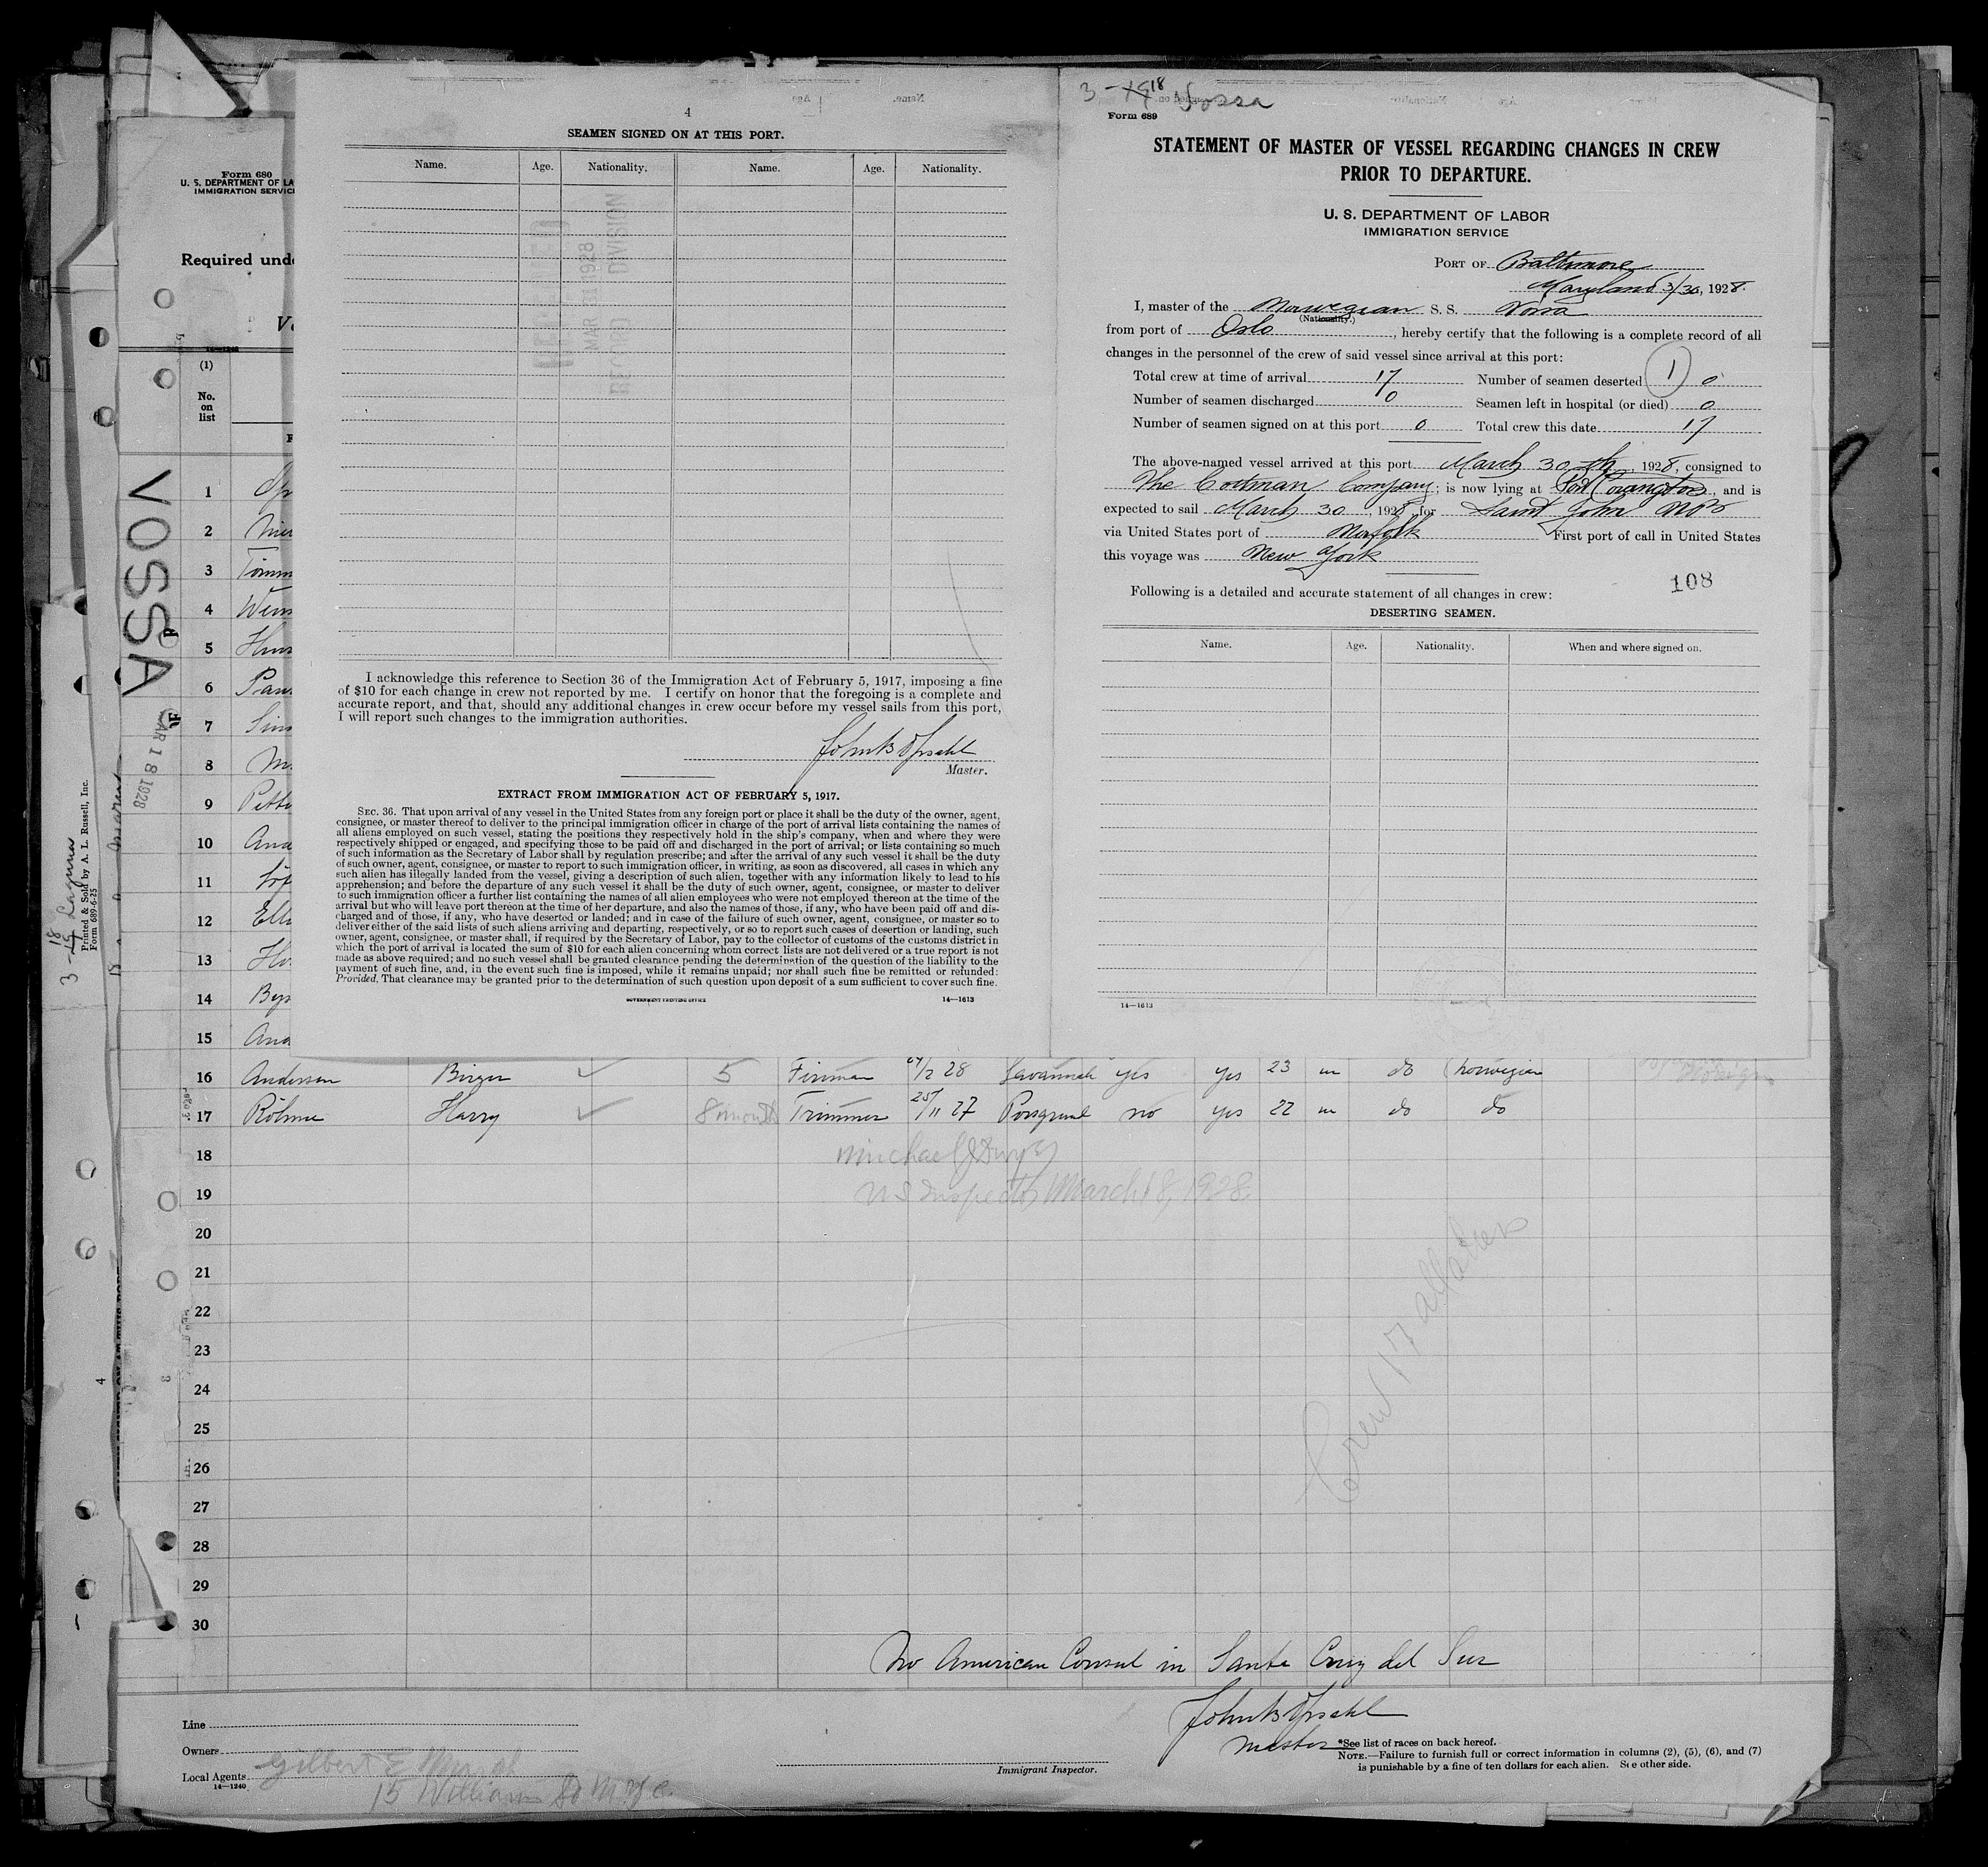 4
SEAMEN SIGNED ON AT THIS PORT.
Name. Age. Nationality. Name. Age. Nationality.
MAR 31 1928
DIVISION
I acknowledge this reference to Section 36 of the Immigration Act of February 5, 1917, imposing a fine
of $10 for each change in crew not reported by me. I certify on honor that the foregoing is a complete and
accurate report, and that, should any additional changes in crew occur before my vessel sails from this port,
I will report such changes to the immigration authorities.
Master.
EXTRACT FROM IMMIGRATION ACT OF FEBRUARY 5, 1917.
SEC. 36. That upon arrival of any vessel in the United States from any foreign port or place it shall be the duty of the owner, agent,
consignee, or master thereof to deliver to the principal immigration officer in charge of the port of arrival lists containing the names of
all aliens employed on such vessel, stating the positions they respectively hold in the ship's company, when and where they were
respectively shipped or engaged, and specifying those to be paid off and discharged in the port of arrival; or lists containing so much
of such information as the Secretary of Labor shall by regulation prescribe; and after the arrival of any such vessel it shall be the duty
of such owner, agent, consignee, or master to report to such immigration officer, in writing, as soon as discovered, all cases in which any
such alien has illegally landed from the vessel, giving a description of such alien, together with any information likely to lead to his
apprehension; and before the departure of any such vessel it shall be the duty of such owner, agent, consignee, or master to deliver
to such immigration officer a further list containing the names of all alien employees who were not employed thereon at the time of the
arrival but who will leave port thereon at the time of her departure, and also the names of those, if any, who have been paid off and dis-
charged and of those, if any, who have deserted or landed; and in case of the failure of such owner, agent, consignee, or master so to
deliver either of the said lists of such aliens arriving and departing, respectively, or so to report such cases of desertion or landing, such
owner, agent, consignee, or master shall, if required by the Secretary of Labor, pay to the collector of customs of the customs district in
which the port of arrival is located the sum of $10 for each alien concerning whom correct lists are not delivered or a true report is not
made as above required; and no such vessel shall be granted clearance pending the determination of the question of the liability to the
payment of such fine, and, in the event such fine is imposed, while it remains unpaid; nor shall such fine be remitted or refunded:
Provided, That clearance may be granted prior to the determination of such question upon deposit of a sum sufficient to cover such fine.
GOVERNMENT PRINTING OFFICE 14—1613
3-18 Vossa
Form 689
STATEMENT OF MASTER OF VESSEL REGARDING CHANGES IN CREW
PRIOR TO DEPARTURE.
U. S. DEPARTMENT OF LABOR
IMMIGRATION SERVICE
PORT OF Baltimore
Maryland 3/30, 1928.
I, master of the Norwegian S. S. Vossa
(Nationality.)
from port of Oslo, hereby certify that the following is a complete record of all
changes in the personnel of the crew of said vessel since arrival at this port:
Total crew at time of arrival 17 Number of seamen deserted 1 0
Number of seamen discharged 0 Seamen left in hospital (or died) 0
Number of seamen signed on at this port 0 Total crew this date 17
The above-named vessel arrived at this port March 30 th, 1928, consigned to
The Cottman Company; is now lying at Port Covington, and is
expected to sail March 30, 1928, for Saint John NB
via United States port of Norfolk First port of call in United States
this voyage was New York
108
Following is a detailed and accurate statement of all changes in crew:
DESERTING SEAMEN.
Name. Age. Nationality. When and where signed on.
14—1613
Form 680
U. S. DEPARTMENT OF LA
IMMIGRATION SERVICE
Required und
(1)
No.
on
list
VOSSA
MAR 18 1928
3-18 Laguna
Printed & Sold by A. L. Russell, Inc.
Form 689-6-25
1
2
3 Tomm
4
5
6
7
8
9
10
11
12
13
14
15
16 Andersen Birger 5 Fireman 28 Savannah yes yes 23 m do Norwegian
17 Röhme Harry 8 month Trimmer 25/11 27 Porsgrund no yes 22 m do do
18
19 US Inspector March 18, 1928.
20
21
22
23
24
25
26
27
28
29
30
Crew 17 all aliens
No American Consul in Santa Cruz del Sur
Master
Line
Owners
Local Agents
14—1240
15 William St N.Y.C.
Immigrant Inspector.
*See list of races on back hereof.
NOTE.—Failure to furnish full or correct information in columns (2), (5), (6), and (7)
is punishable by a fine of ten dollars for each alien. See other side.